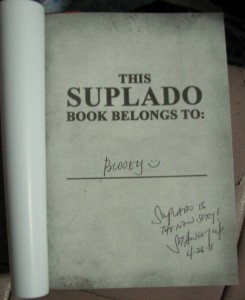 THIS
SUPLADO
BOOK BELONGS TO:
BLOOEY
SUPLADO IS
THE NEW SEXY!